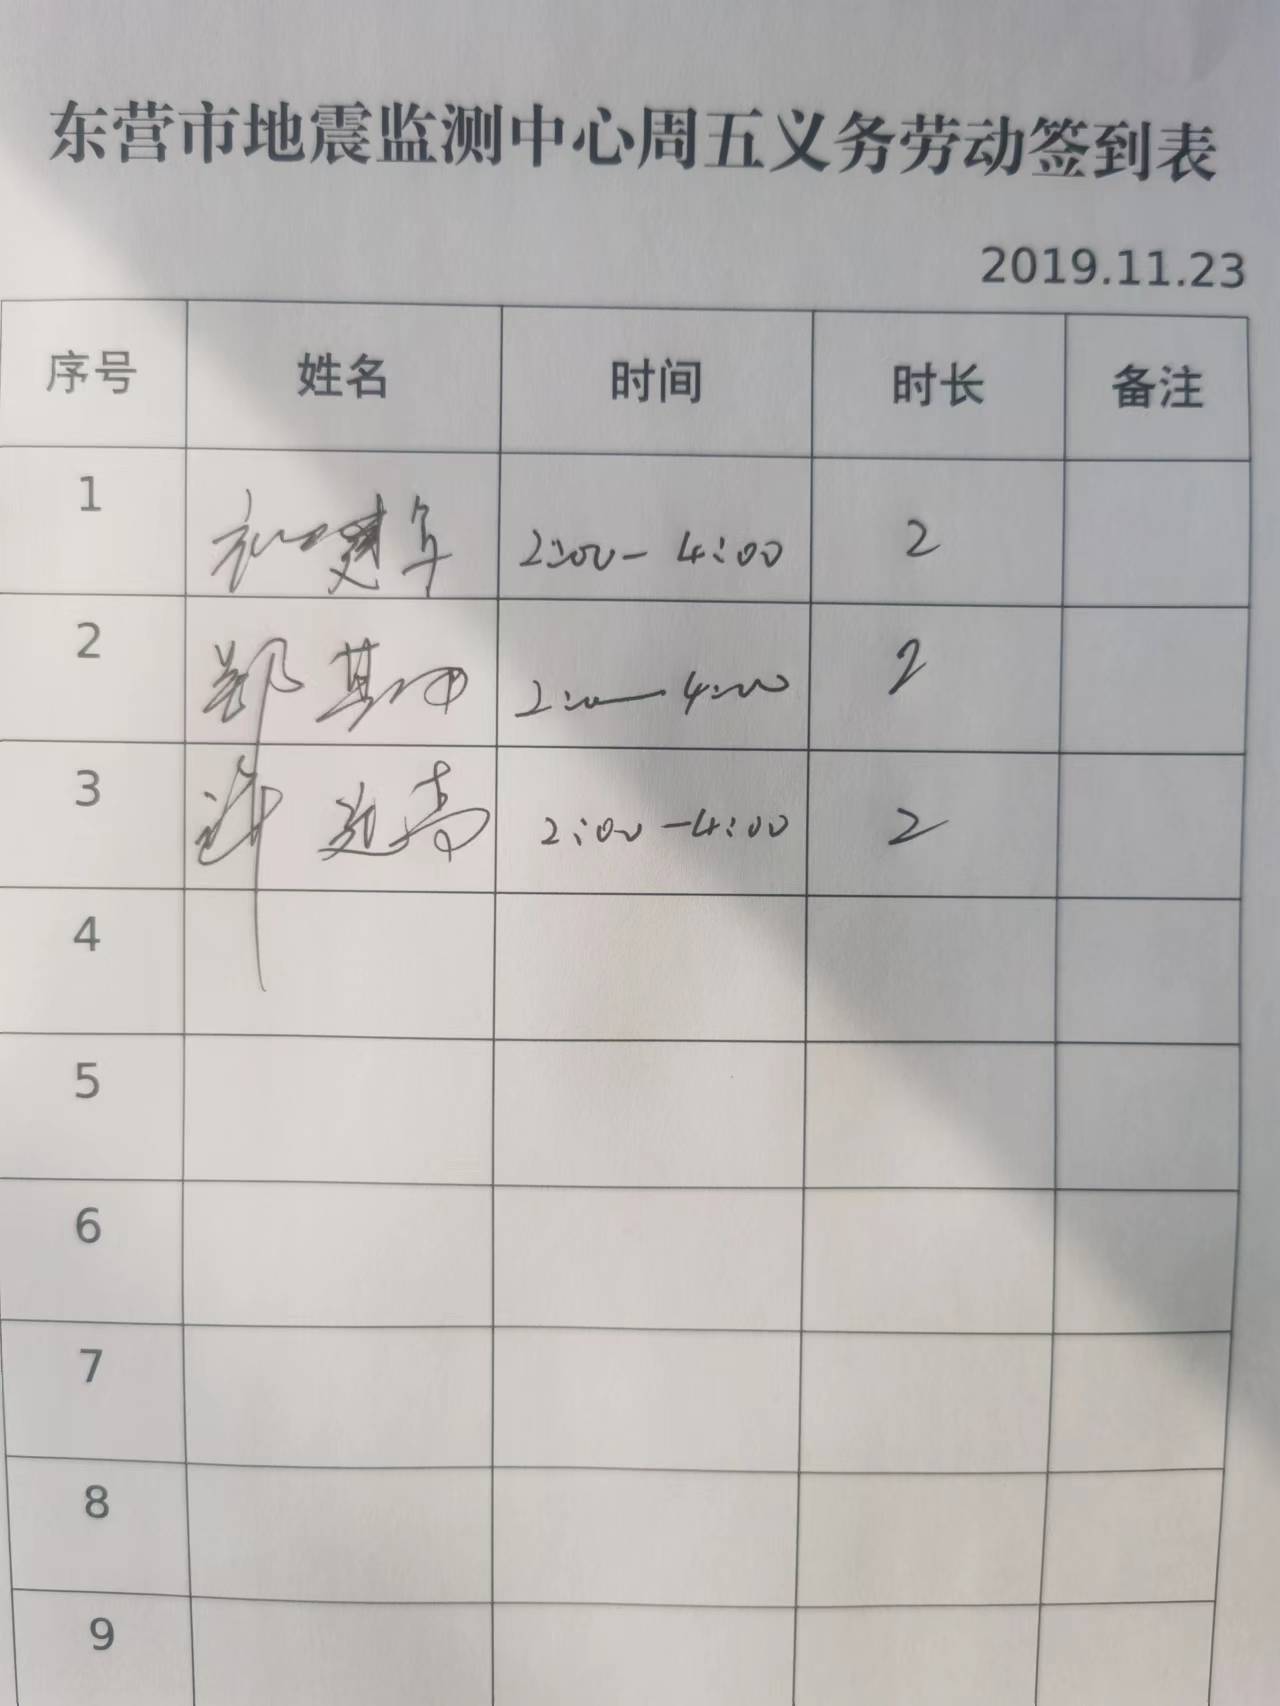 东营市地震监测中心周五义务劳动签到表
2019.11.23
序号 姓名 时间 时长 备注
1 2:00-4:00 2
2 郑其 2:00-4:00 2
3 许 2:00-4:00 2
4
5
6
7
8
9